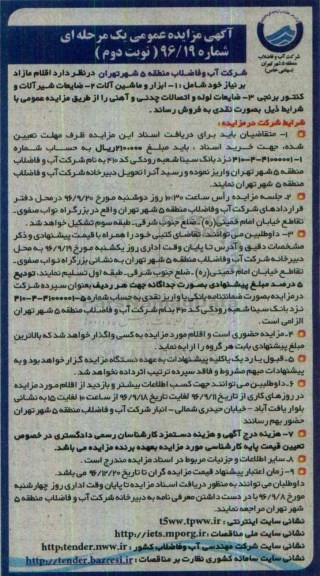 آگهی مزایده عمومی یک مرحله ای
شماره ۹۶/۱۹ ( نوبت دوم )
شرکت آب و فاضلاب
منطقه ۵ شهر تهران
(سهامی خاص)
شرکت آب و فاضلاب منطقه ۵ شهر تهران در نظر دارد اقلام مازاد
بر نیاز خود شامل : ۱- ابزار و ماشین آلات ۲- ضایعات شیرآلات و
کنتور برنجی ۳- ضایعات لوله و اتصالات چدنی و آهنی را از طریق مزایده عمومی با
شرایط ذیل بصورت نقدی به فروش رساند .
شرایط شرکت در مزایده :
۱- متقاضیان باید برای دریافت اسناد این مزایده ظرف مهلت تعیین
شده، جهت خرید اسناد ، باید مبلغ ۲۱۰،۰۰۰ریال به حساب شماره
نزد بانک سینا شعبه رودکی کد ۴۱۰ به نام شرکت آب و فاضلاب
منطقه ۵ شهر تهران واریز نموده و رسید آنرا تحویل دبیرخانه شرکت آب و فاضلاب
منطقه ۵ شهر تهران نمایند.
۲. جلسه مزایده رأس ساعت ۱۰:۳۰ روز دوشنبه مورخ ۹۶/۹/۲۰ در محل دفتر
قراردادهای شرکت آب و فاضلاب منطقه ۵ شهر تهران واقع در بزرگراه نواب صفوی.
تقاطع خیابان امام خمینی(ره) . ضلع جنوب شرقی. طبقه سوم تشکیل خواهد شد .
۳- داوطلبین می توانند، تقاضای کتبی خود را همراه با قیمت پیشنهادی و ذکر
مشخصات دقیق و آدرس تا پایان وقت اداری روز یکشنبه مورخ ۹۶/۹/۱۹ به محل
دبیرخانه شرکت آب و فاضلاب منطقه ۵ شهر تهران به نشانی بزرگراه نواب صفوی .
تقاطع خیابان امام خمینی(ره) . ضلع جنوب شرقی. طبقه اول تسلیم نمایند. تودیع
۵ درصد مبلغ پیشنهادی بصورت جداگانه جهت هر ردیف بعنوان سپرده شرکت
در مزایده بصورت ضمانتنامه بانکی یا واریز نقدی به حساب شماره
نزد بانک سینا شعبه رودکی کد ۴۱۰ بنام شرکت آب و فاضلاب منطقه ۵ شهر تهران
الزامی است .
۴. مزایده حضوری است و اقلام مورد مزایده به کسی واگذار خواهد شد که بالاترین
مبلغ پیشنهادی بابت هر گروه را ارایه نماید .
۵. قبول یا رد یک یا کلیه پیشنهادات به عهده دستگاه مزایده گزار خواهد بود و به
پیشنهادات مبهم مشروط و فاقد سپرده ترتیب اثر داده نخواهد شد .
۶. داوطلبین می توانند جهت کسب اطلاعات بیشتر و بازدید از اقلام مورد مزایده
در روزهای کاری از تاریخ ۹۶/۹/۱۱ لغایت تاریخ ۹۶/۹/۱۸ از ساعت ۱۰ لغایت ۱۵ به نشانی
بلوار یافت آباد - خیابان حیدری شمالی - انبار شرکت آب و فاضلاب منطقه ۵ شهر تهران
حضور بهم رسانند
۷- هزینه درج آگهی و هزینه دستمزد کارشناسان رسمی دادگستری در خصوص
تعیین قیمت پایه کارشناسی مورد مزایده بعهده برنده مزایده می باشد.
۸. سایر اطلاعات و جزئیات مربوط در اسناد مزایده مندرج است .
۹- زمان اعتبار پیشنهاد قیمت مزایده گران تا تاریخ ۹۶/۱۲/۲۰ می باشد.
داوطلبان می توانند به منظور دریافت اسناد مزایده تا پایان وقت اداری روز چهارشنبه
مورخ ۹۶/۹/۸ با در دست داشتن معرفی نامه به دبیرخانه شرکت آب و فاضلاب منطقه ۵
شهر تهران مراجعه نمایند.
نشانی سایت اینترنتی : t5ww.tpww.ir
نشانی سایت ملی مناقصات : http://iets.mporg.ir
نشانی سایت شرکت مهندسی آب و فاضلاب کشور : http:tender.nww.ir
نشانی سایت سامانه کشوری نظارت بر مناقصات : http://tender.bazresi.ir